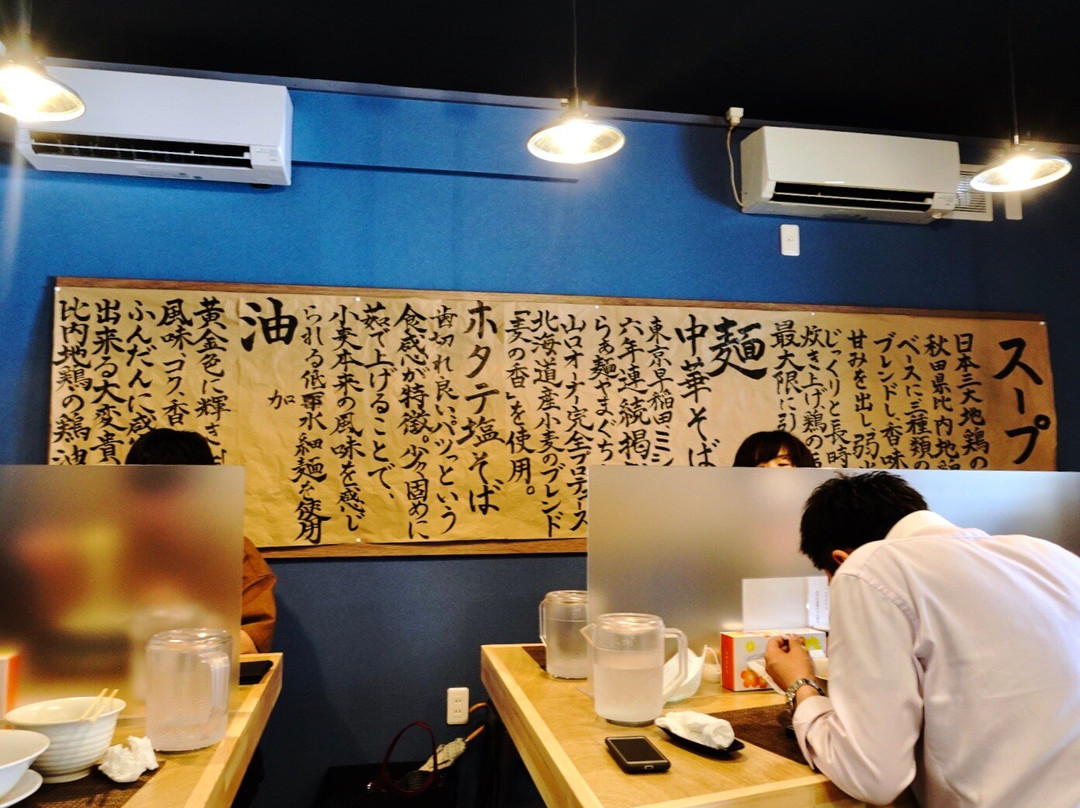 スープ
日本三大地鶏の
秋田県比内地鶏
ベースに三種類の
ブレンドし、香味
甘みを出し、弱火
じっくりと長時
炊き上げ鶏の
最大限に引
麺
中華そば
東京早稲田ミシ
六年連続掲
らぁ麺やまぐち
山口オーナー完全プロデュース
北海道産小麦のブレンド
「麦の香」を使用。
ホタテ塩そば
歯切れ良いパツっという
食感が特徴。少々固めに
茹で上げることで、
小麦本来の風味を感じ
られる低加水細麺を使用
油
黄金色に輝き
風味、コク、香
ふんだんに感
出来る大変貴
比内地鶏の鶏油